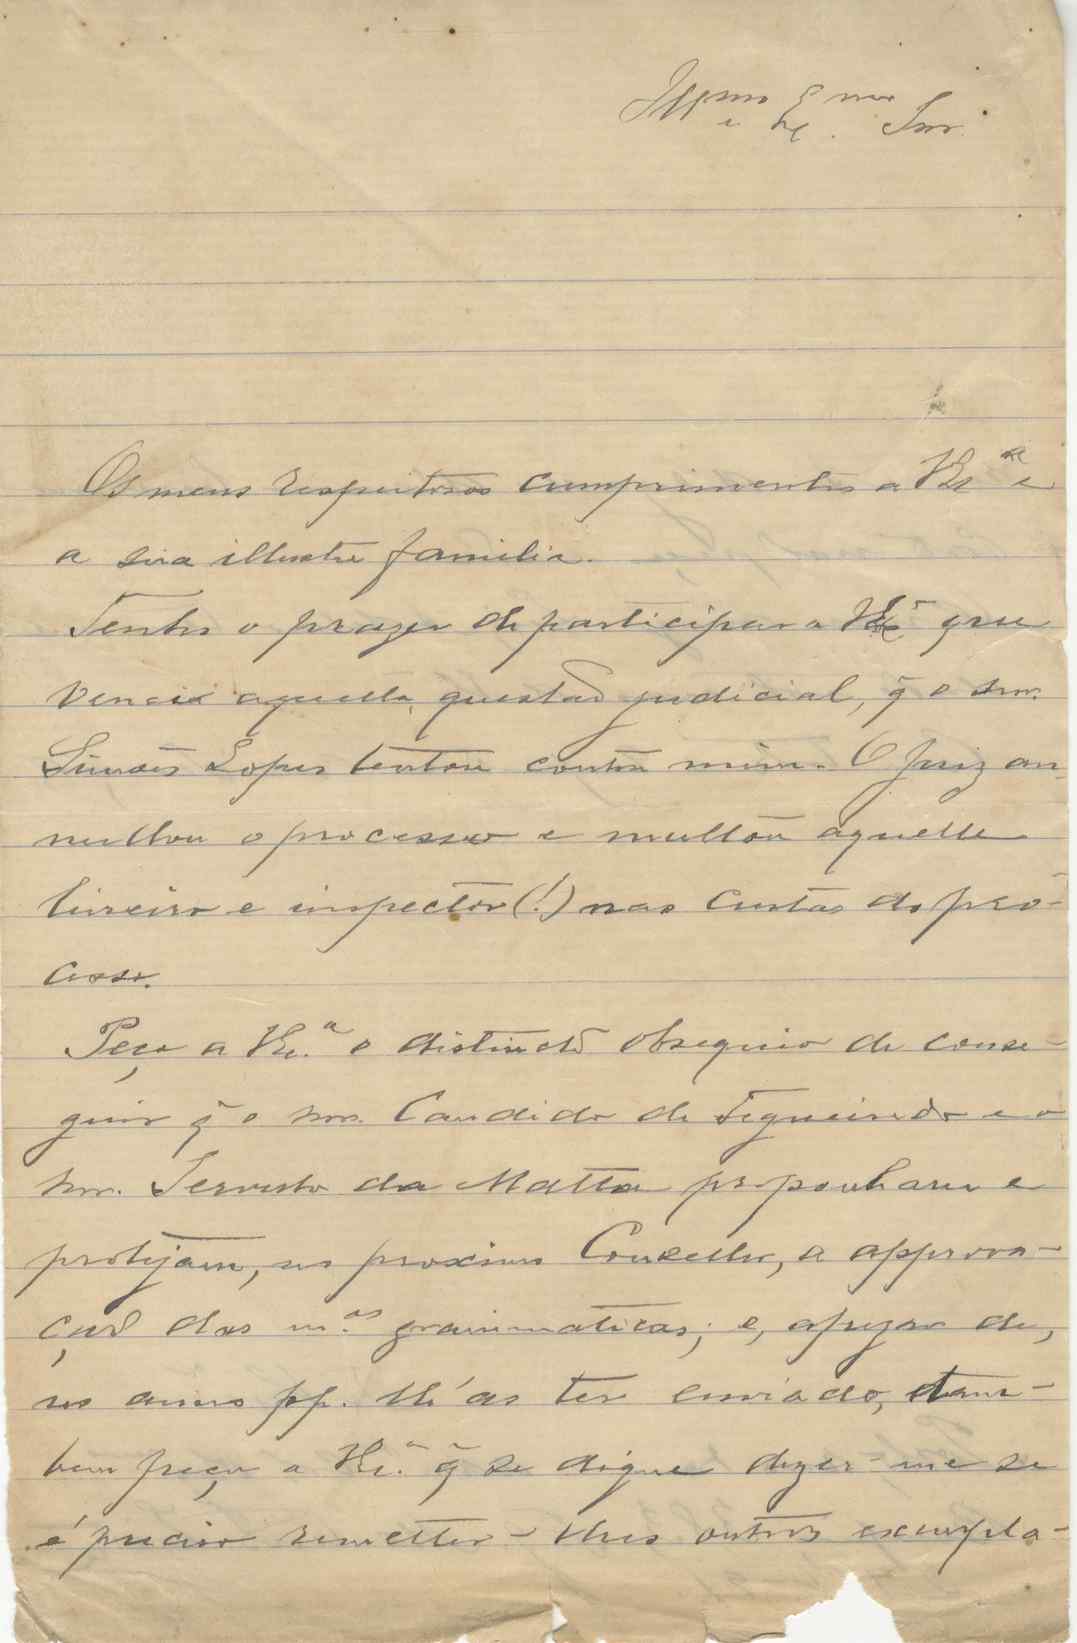 Illmo e Exmo Snr.
Os meus respeitosos cumprimentos a VExª e
a sua illustre familia.
Tenho o prazer de participar a VExª que
venci aquella questão judicial, q̃ o snr.
Simões Lopes tentou contra mim. O Juiz an-
nullou o processo e multou aquelle
livreiro e inspector (!) nas custas do pro-
cesso.
Peço a VExª o distincto obsequio de conse-
guir q̃ o snr. Candido de Figueiredo e o
snr. da Matta proponham e
protejam, no proximo Conselho, a approva-
ção das m.as grammaticas; e, apezar de,
no anno pp. lh'as ter enviado, tam-
bem peço a VExª q̃ se digne dizer-me se
é preciso remetter-lhes outros exempla-